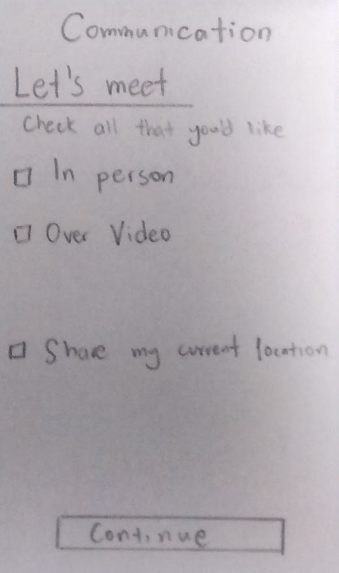 Communication
Let's meet
Check all that you'd like
In person
Over Video
Share my current location
Continue